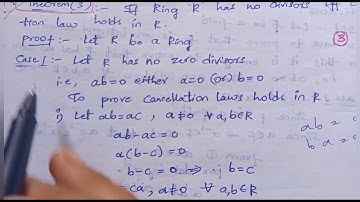 Theorem(3):- If Ring R has no divisors
tion law holds in R.
Proof:- Let R be a Ring
③
Case 1:- Let R has no zero divisors
i.e, ab=0 either a=0 (or) b=0
To prove cancellation laws holds in R.
i) Let ab=ac, a≠0 ∀ a,b∈R
ab-ac=0
a(b-c)=0
b-c=0 ⇒ b=c
=ca, a≠0 ∀ a,b∈R
ab =
ba =